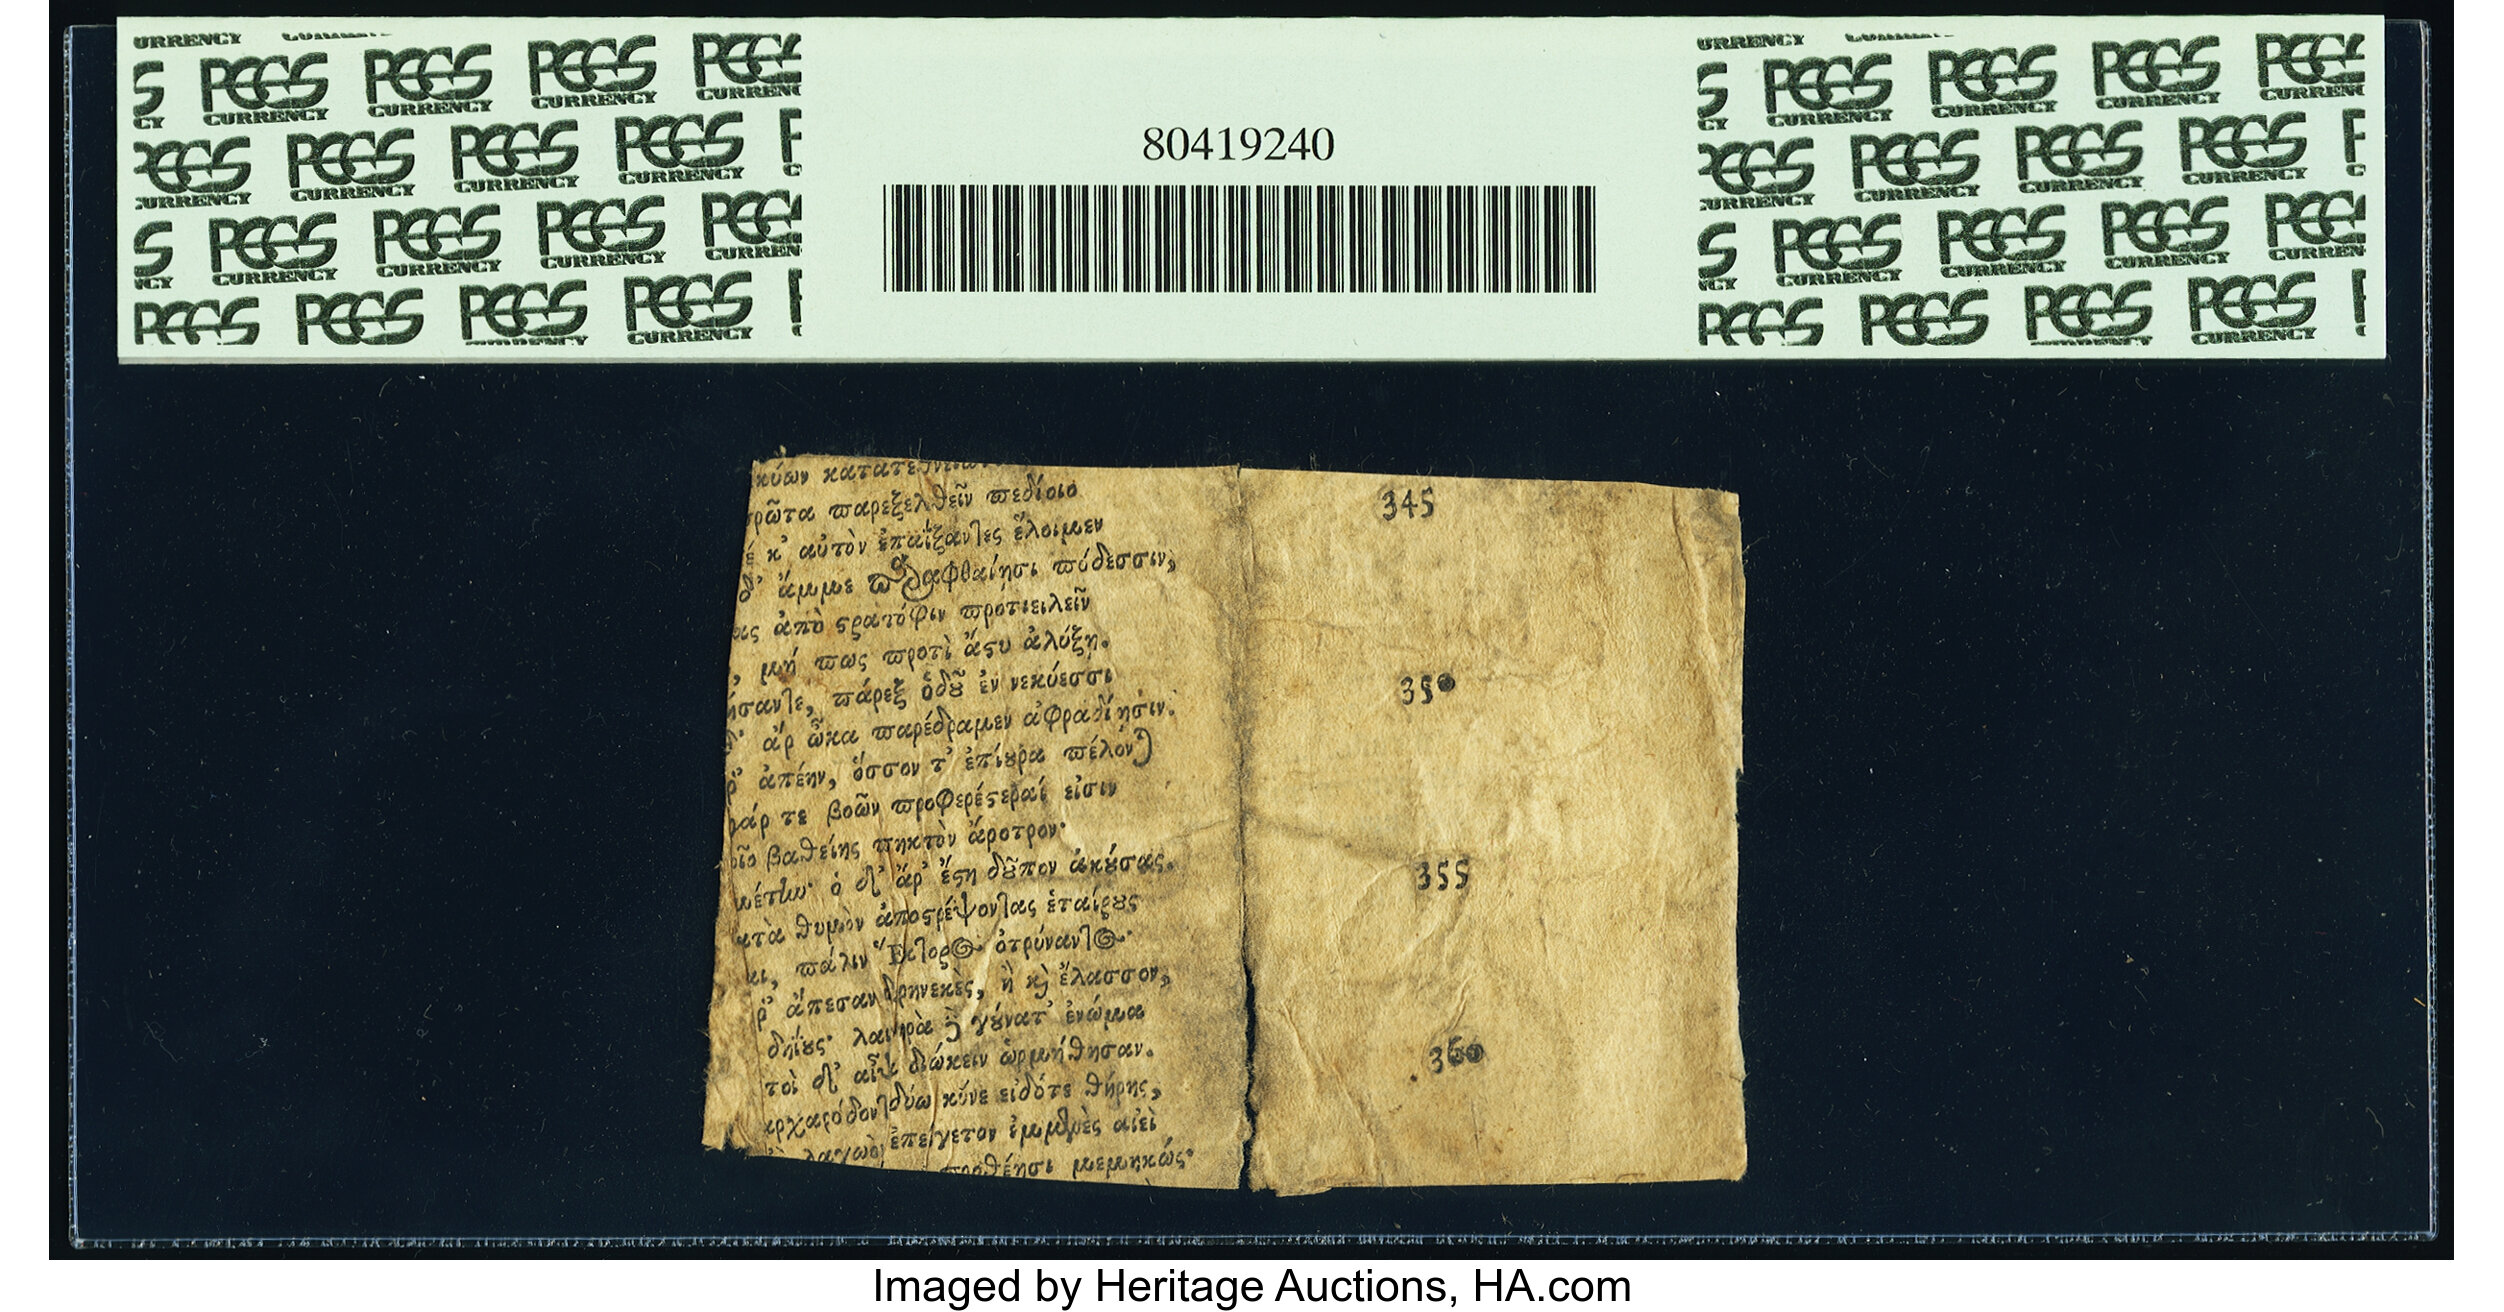 80419240
κύων κατατε
ρῶτα παρεξελθεῖν πεδίοιο
345
κ' αὐτὸν ἐπαΐξαντες ἕλοιμεν
δ' ἄμμε παραφθαίησι πόδεσσιν,
ας ἀπὸ στρατόφιν προτιειλεῖν
, μή πως προτὶ ἄστυ ἀλύξῃ.
ήσαντε, πάρεξ ὁδοῦ ἐν νεκύεσσι
350
δ' ἄρ ὦκα παρέδραμεν ἀφραδίῃσιν.
ῥ' ἀπέην, ὅσσον τ' ἐπίουρα πέλονται
γάρ τε βοῶν προφερέστεραί εἰσιν
οῖο βαθείης πηκτὸν ἄροτρον·
μέτην· ὁ δ' ἄρ' ἔστη δοῦπον ἀκούσας.
355
ατὰ θυμὸν ἀποστρέψοντας ἑταίρους
ι, πάλιν Ἕκτορος ὀτρύναντος·
ῥ' ἄπεσαν δρηνεκὲς, ἢ καὶ ἔλασσον,
δηίους· λαιψηρὰ δὲ γούνατ' ἐνώμα
τοὶ δ' αἶψ διώκειν ὡρμήθησαν.
360
αρχαρόδοντε δύω κύνε εἰδότε θήρης,
λαγωὸν ἐπείγετον ἐμμενὲς αἰεὶ
προθέησι μεμηκώς·
PCGS CURRENCY
Imaged by Heritage Auctions, HA.com